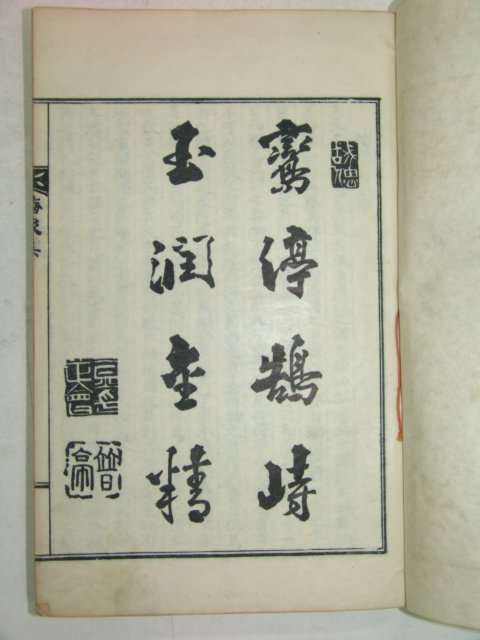 鸞停鵠峙
玉潤金精